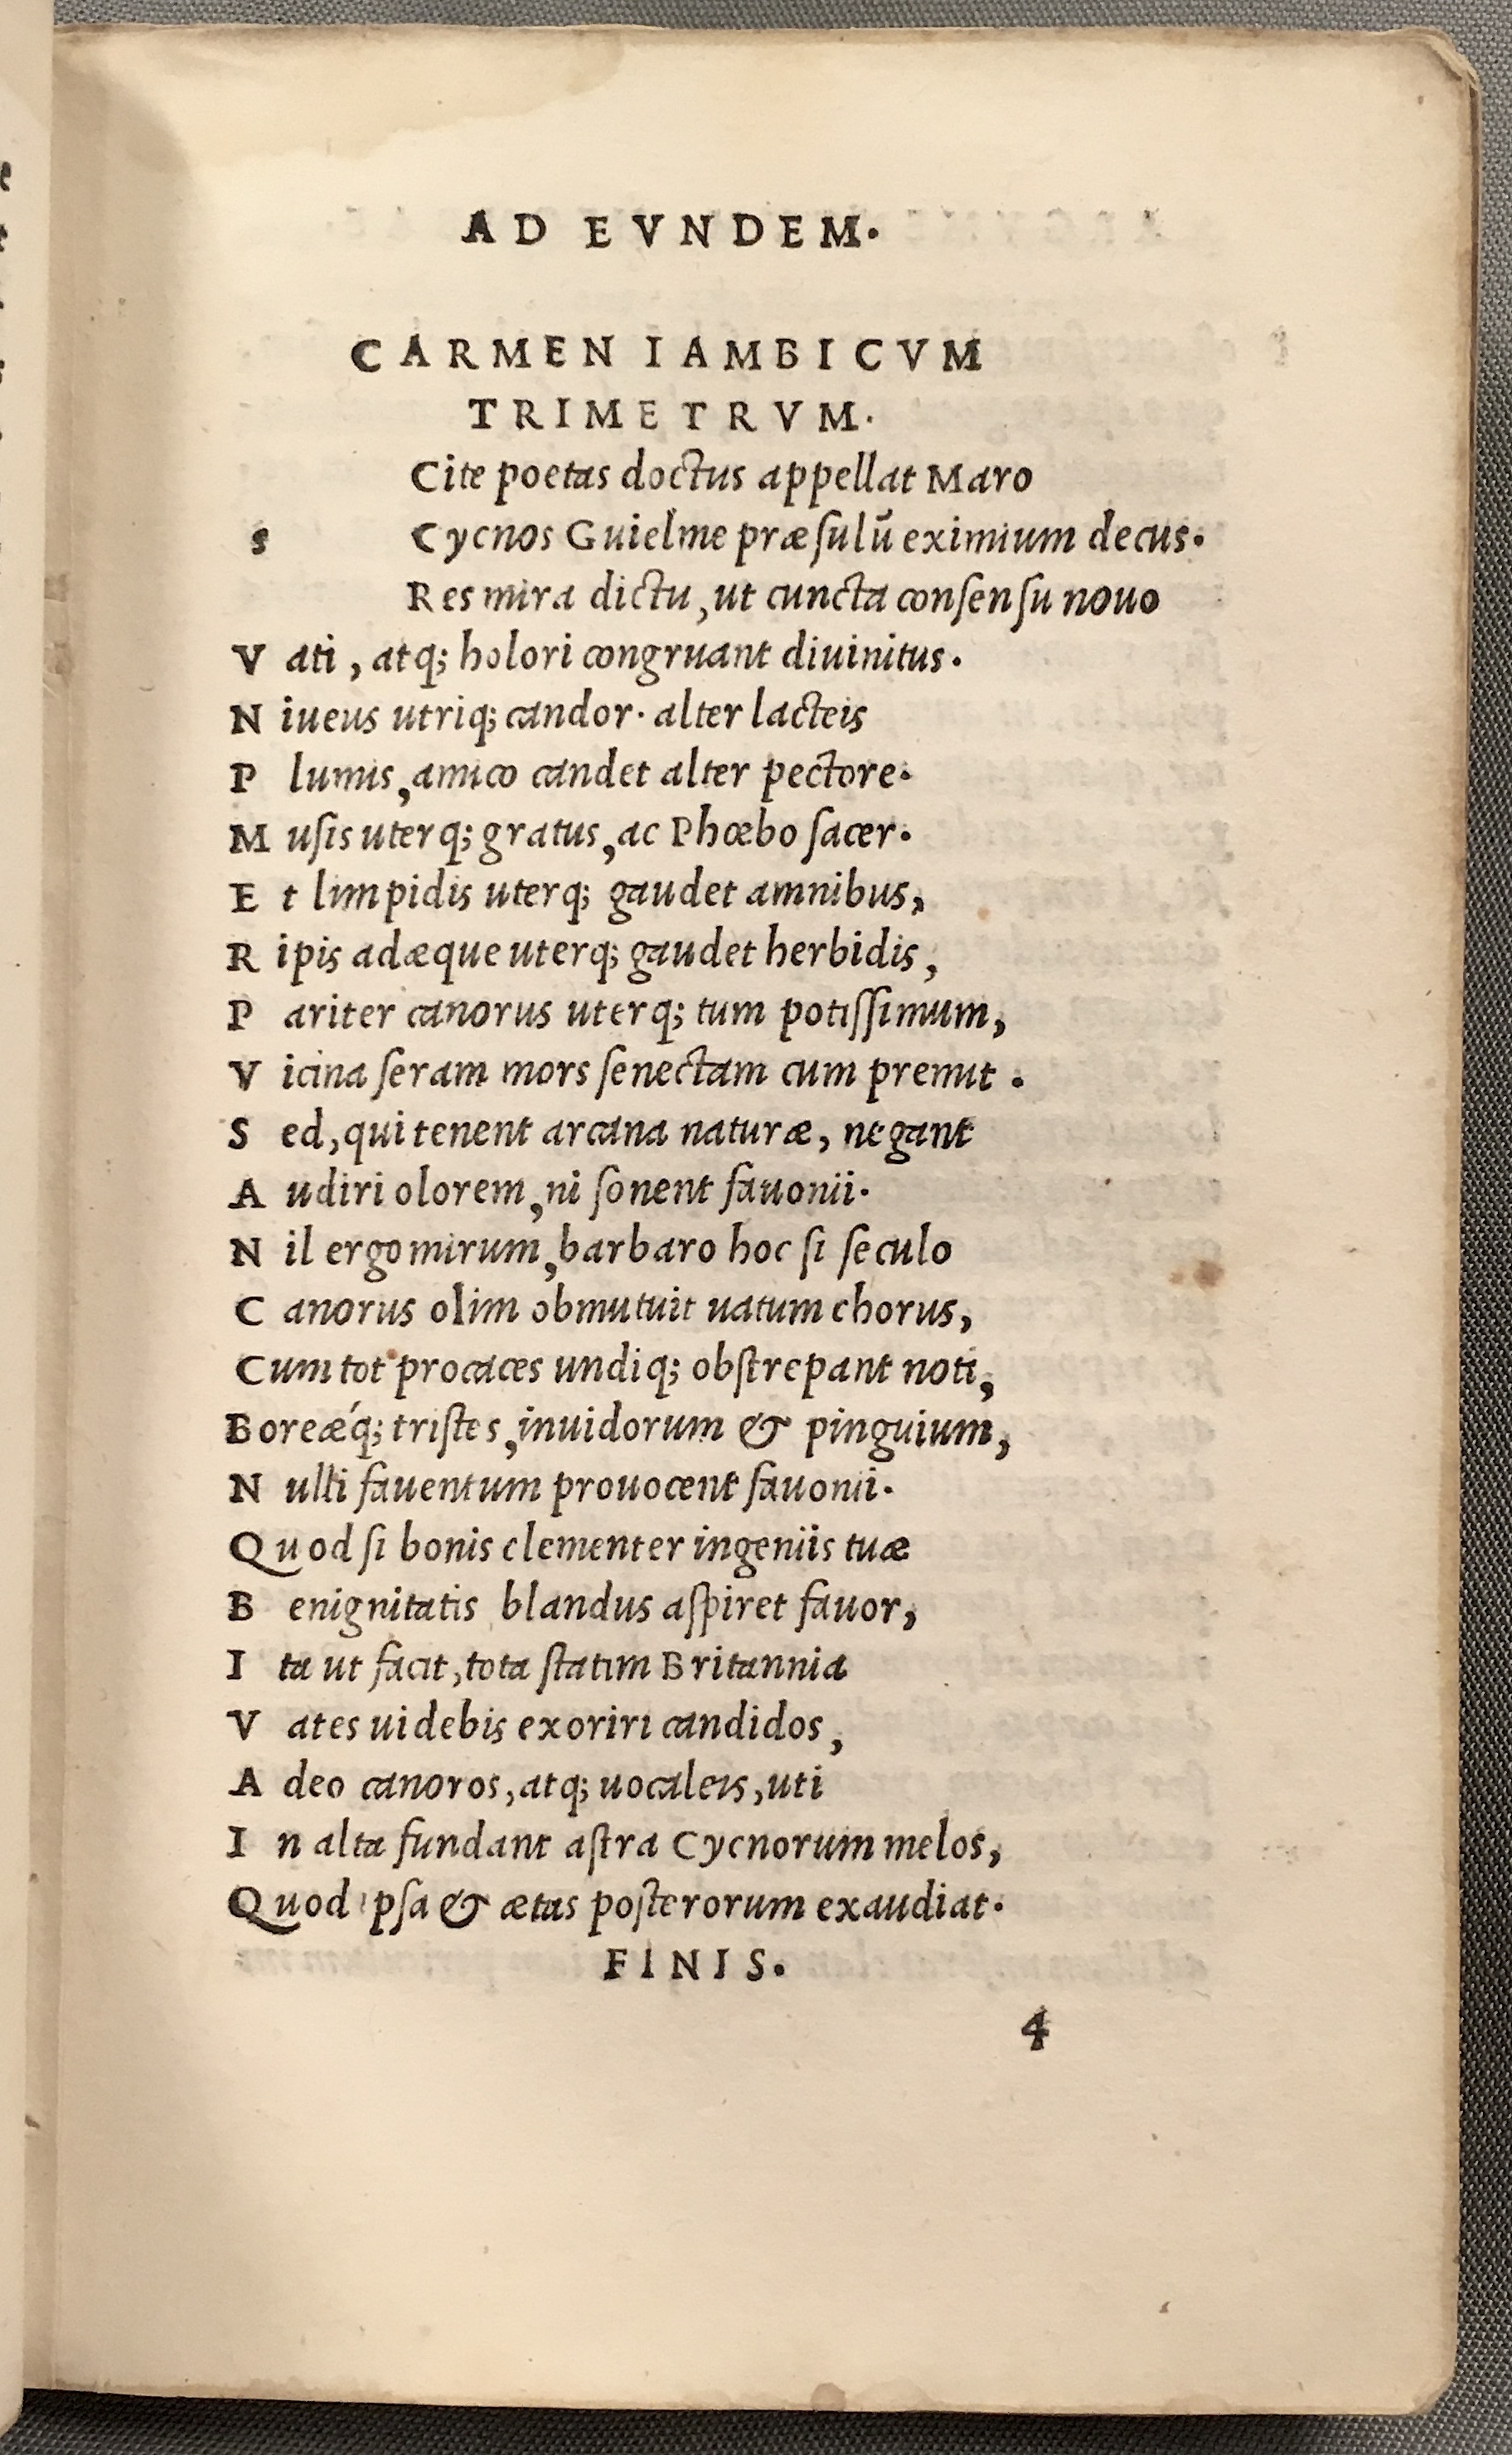 AD EVNDEM.
CARMEN IAMBICVM
TRIMETRVM.
Cite poetas doctus appellat Maro
s Cycnos Guielme præſulū eximium decus.
Res mira dictu, ut cuncta conſenſu nouo
Vati, atq; holori congruant diuinitus.
Niueus utriq; candor. alter lacteis
Plumis, amico candet alter pectore.
Muſis uterq; gratus, ac Phœbo ſacer.
Et limpidis uterq; gaudet amnibus,
Ripis adæque uterq; gaudet herbidis,
Pariter canorus uterq; tum potiſſimum,
Vicina ſeram mors ſenectam cum premit.
Sed, qui tenent arcana naturæ, negant
Audiri olorem, ni ſonent fauonii.
Nil ergo mirum, barbaro hoc ſi ſeculo
Canorus olim obmutuit uatum chorus,
Cum tot procaces undiq; obſtrepant noti,
Boreǽq; triſtes, inuidorum & pinguium,
Nulli fauentum prouocent fauonii.
Quod ſi bonis clementer ingeniis tuæ
Benignitatis blandus aſpiret fauor,
Ita ut facit, tota ſtatim Britannia
Vates uidebis exoriri candidos,
Adeo canoros, atq; uocaleis, uti
In alta fundant aſtra Cycnorum melos,
Quod ipſa & ætas poſterorum exaudiat.
FINIS.
4